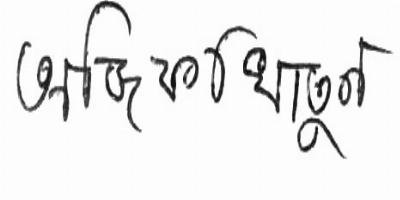 আজিফা খাতুন